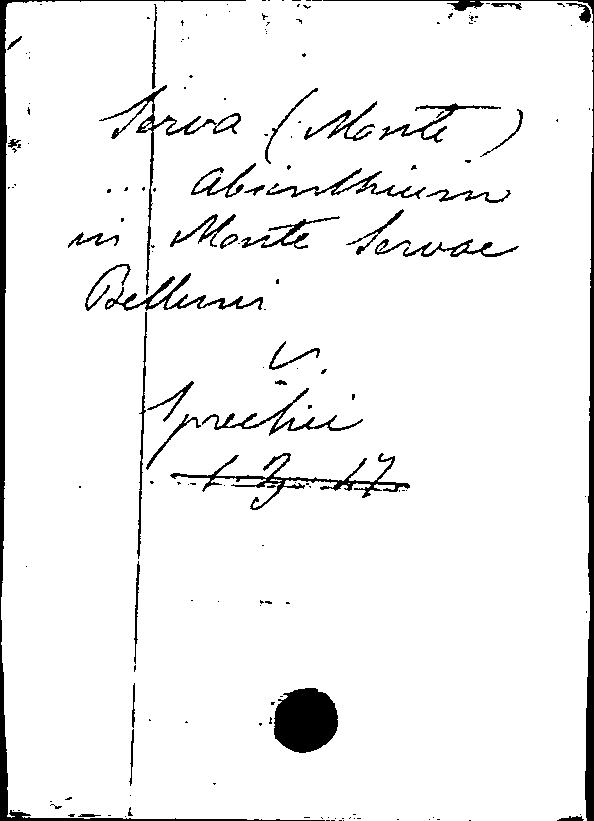 Serva (Monte)
.... absinthium
in Monte Servae
Belluni
v.
Sprechii
1 3 17